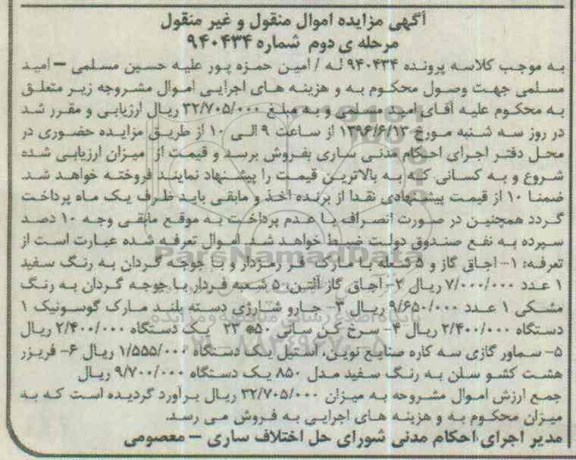 آگهی مزایده اموال منقول و غیر منقول
مرحله ی دوم شماره ۹۴۰۴۳۴
به موجب کلاسه پرونده ۹۴۰۴۳۴ له / امین حمزه پور علیه حسین مسلمی – امید
مسلمی جهت وصول محکوم به و هزینه های اجرایی اموال مشروحه زیر متعلق
به محکوم علیه آقای امید مسلمی و به مبلغ ۳۲/۷۰۵/۰۰۰ ریال ارزیابی و مقرر شد
در روز سه شنبه مورخ ۱۳۹۶/۶/۱۳ از ساعت ۹ الی ۱۰ از طریق مزایده حضوری در
محل دفتر اجرای احکام مدنی ساری بفروش برسد و قیمت از میزان ارزیابی شده
شروع و به کسانی که به بالاترین قیمت را پیشنهاد نمایند فروخته خواهد شد.
ضمنا ۱۰ از قیمت پیشنهادی نقدا از برنده اخذ و مابقی باید ظرف یک ماه پرداخت
گردد همچنین در صورت انصراف یا عدم پرداخت به موقع مابقی وجه ۱۰ دصد
سپرده به نفع صندوق دولت ضبط خواهد شد. اموال تعرفه شده عبارت است از
تعرفه: ۱- اجاق گاز و ۵ شعله با مارک فر رمزدار و با جوجه گردان به رنگ سفید
۱ عدد ۷/۰۰۰/۰۰۰ ریال ۲- اجاق گاز آلتین، ۵ شعبه فردار با جوجه گردان به رنگ
مشکی ۱ عدد ۹/۶۵۰/۰۰۰ ریال ۳- جارو شارژی دسته بلند مارک گوسونیک ۱
دستگاه ۲/۴۰۰/۰۰۰ ریال ۴- سرخ کن ساتن ۵۰* ۲۳ یک دستگاه ۲/۴۰۰/۰۰۰ ریال
۵- سماور گازی سه کاره صنایع نوین، استیل یک دستگاه ۱/۵۵۵/۰۰۰ ریال ۶- فریزر
هشت کشو سلن به رنگ سفید مدل ۸۵۰ یک دستگاه ۹/۷۰۰/۰۰۰ ریال
جمع ارزش اموال مشروحه به میزان ۳۲/۷۰۵/۰۰۰ ریال برآورد گردیده است که به
میزان محکوم به و هزینه های اجرایی به فروش می رسد.
مدیر اجرای احکام مدنی شورای حل اختلاف ساری – معصومی
ParsNamadData